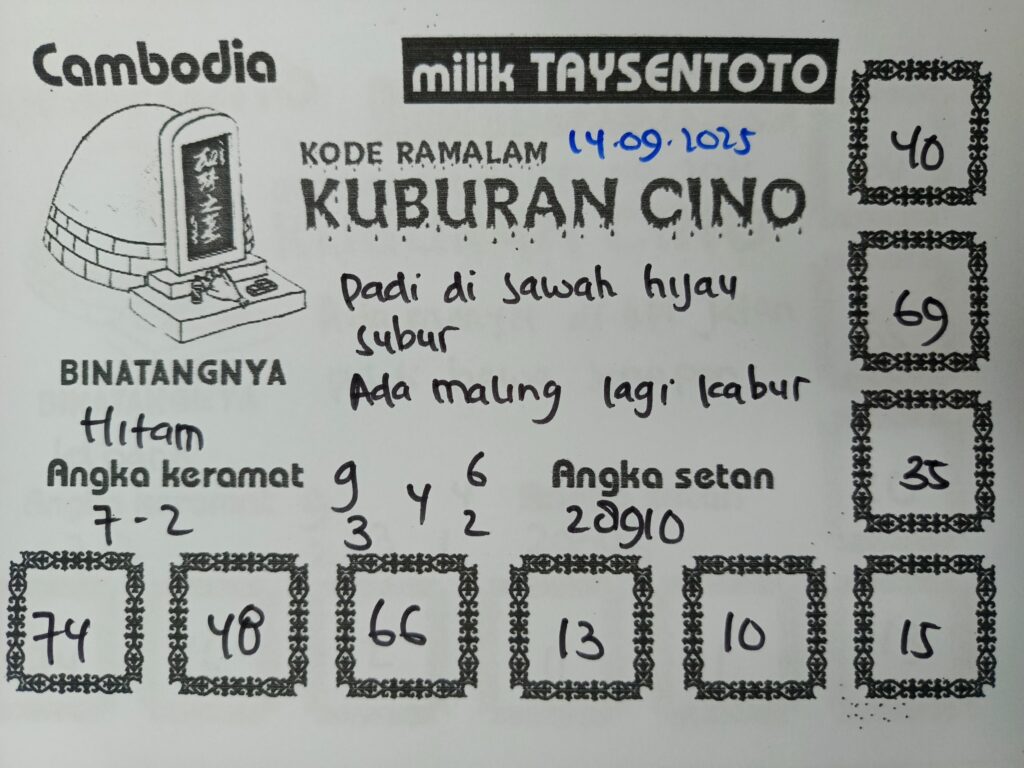 Cambodia
milik TAYSENTOTO
KODE RAMALAM 14.09.2025
KUBURAN CINO
Padi di sawah hijau
subur
Ada maling lagi kabur
BINATANGNYA
Hitam
Angka keramat
7-2
9 4 6
3 2
Angka setan
28910
40
69
35
74 48 66 13 10 15